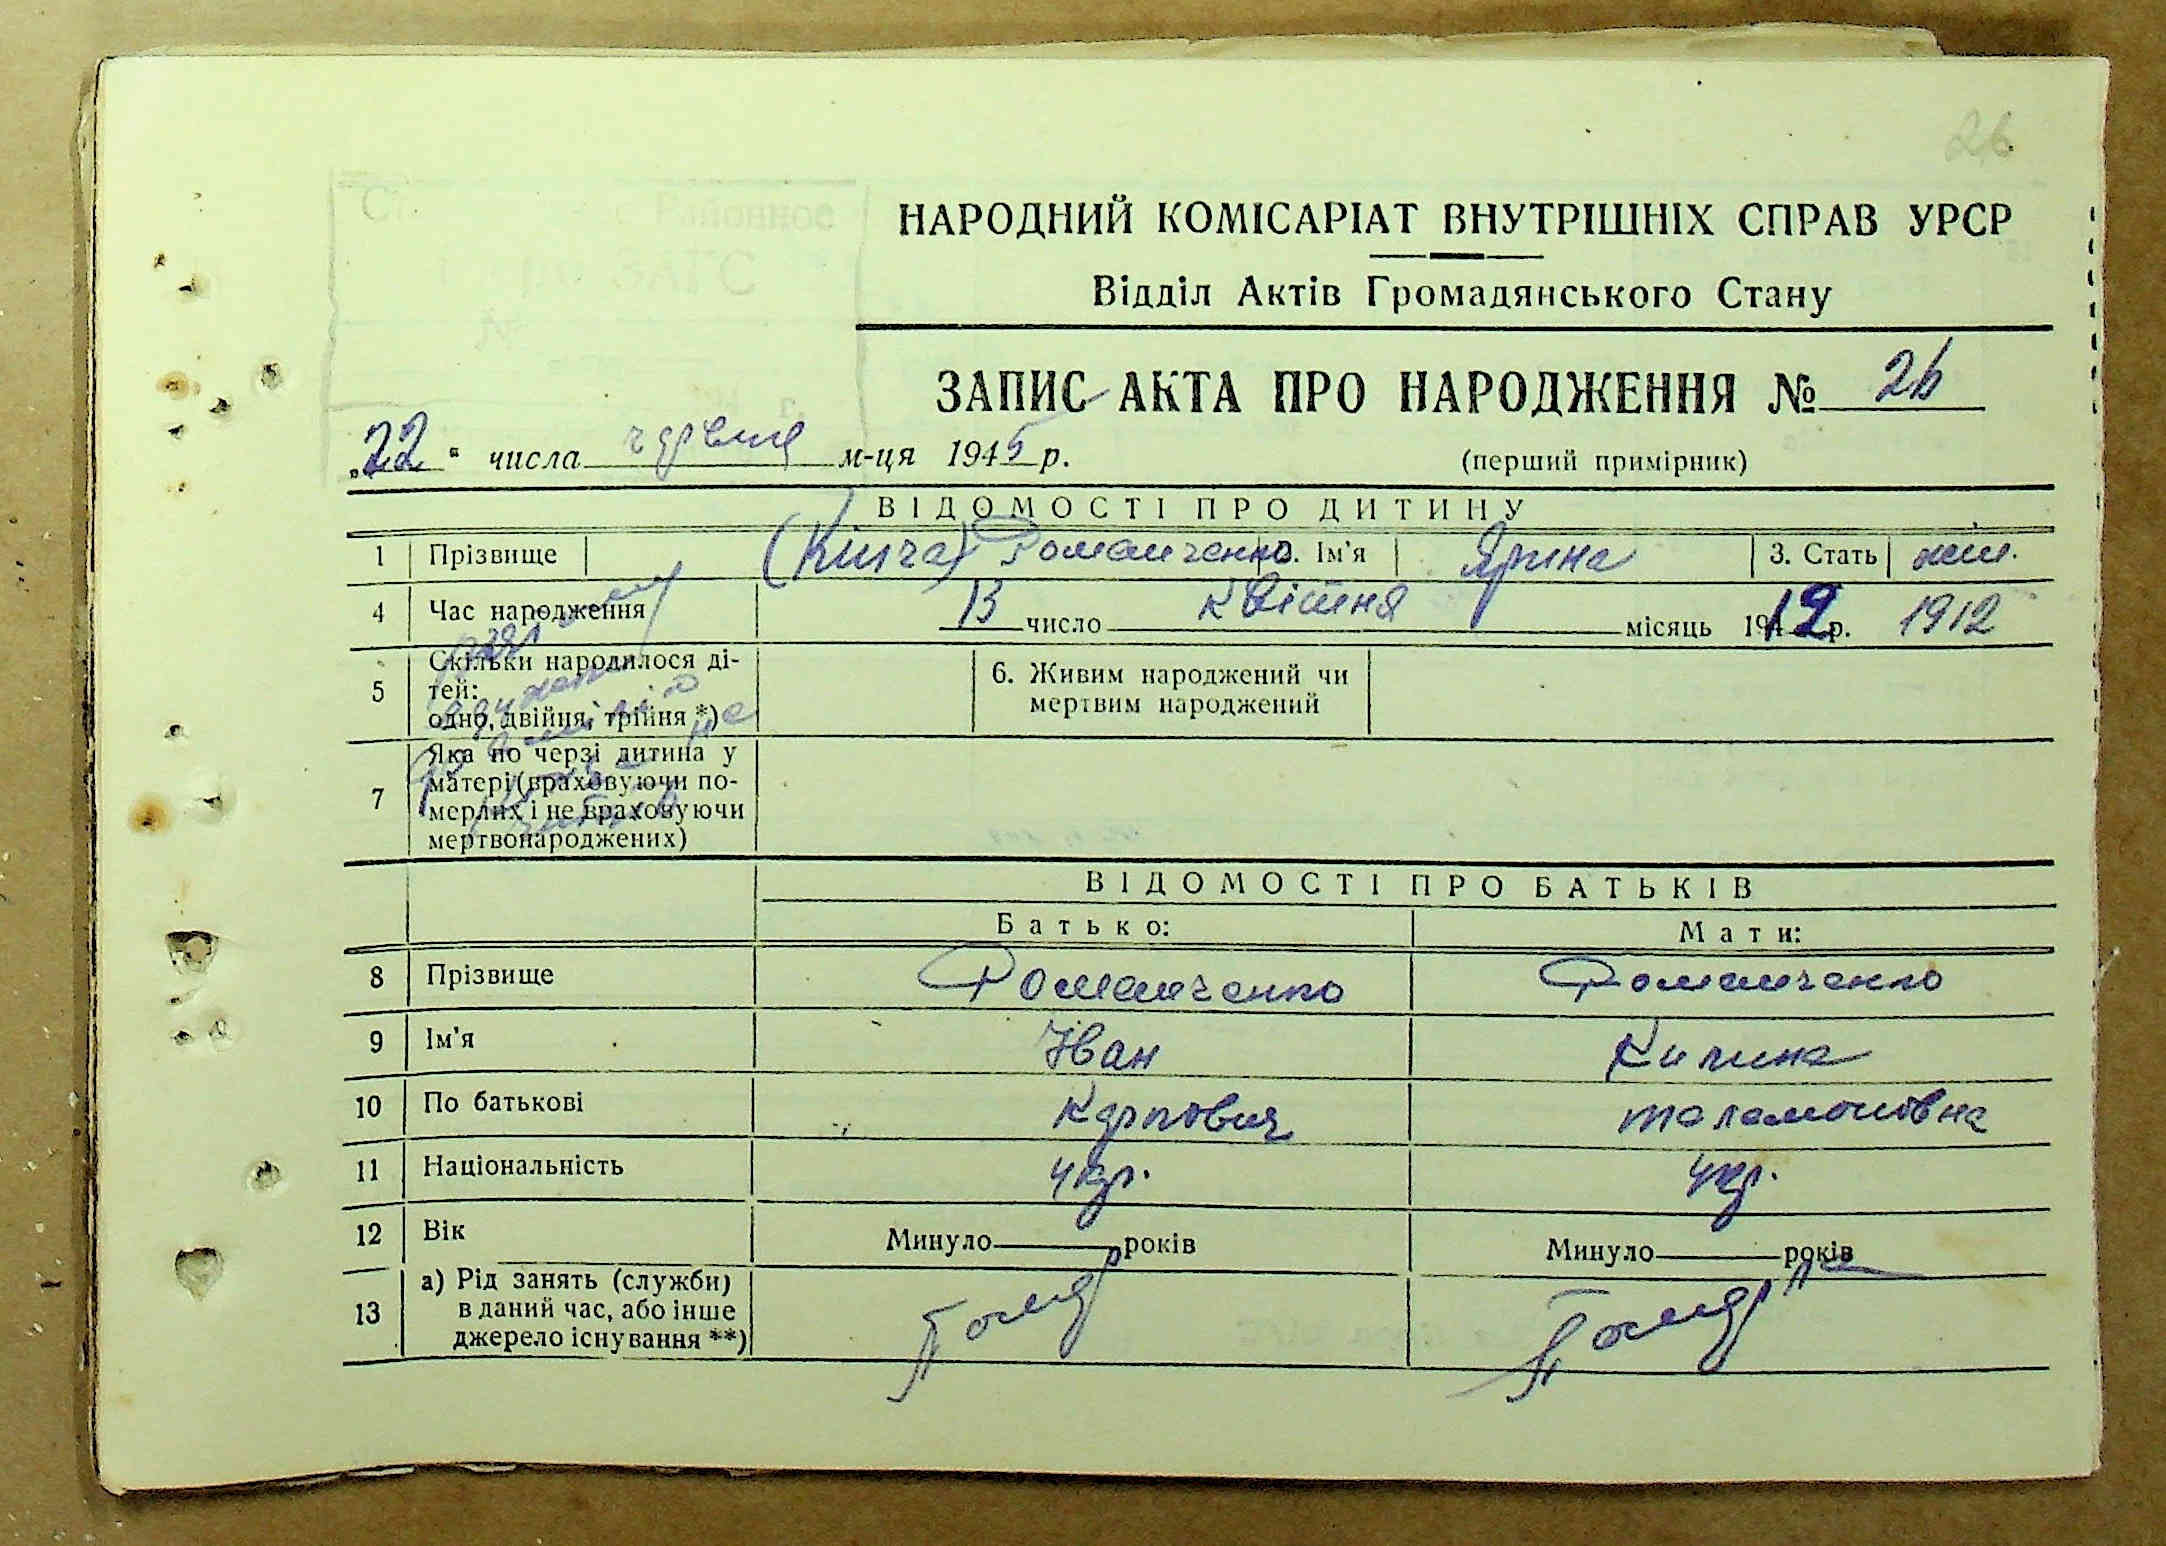 26
НАРОДНИЙ КОМІСАРІАТ ВНУТРІШНІХ СПРАВ УРСР
Відділ Актів Громадянського Стану
ЗАПИС АКТА ПРО НАРОДЖЕННЯ № 26
„22“ числа червня м-ця 1945 р.
(перший примірник)
ВІДОМОСТІ ПРО ДИТИНУ
1 Прізвище Романченко 2. Ім'я Ярина 3. Стать жін.
4 Час народження 13 число квітня місяць 1912 р. 1912
5 Скільки народилося ді-
тей:
одно, двійня, трійня *)
6. Живим народжений чи
мертвим народжений
7 Яка по черзі дитина у
матері (враховуючи по-
мерлих і не враховуючи
мертвонароджених)
ВІДОМОСТІ ПРО БАТЬКІВ
Батько: Мати:
8 Прізвище Романченко Романченко
9 Ім'я Іван Килина
10 По батькові Карпович Теламоновна
11 Національність укр. укр.
12 Вік Минуло років Минуло років
13 а) Рід занять (служби)
в даний час, або інше
джерело існування **)
Помер Померла